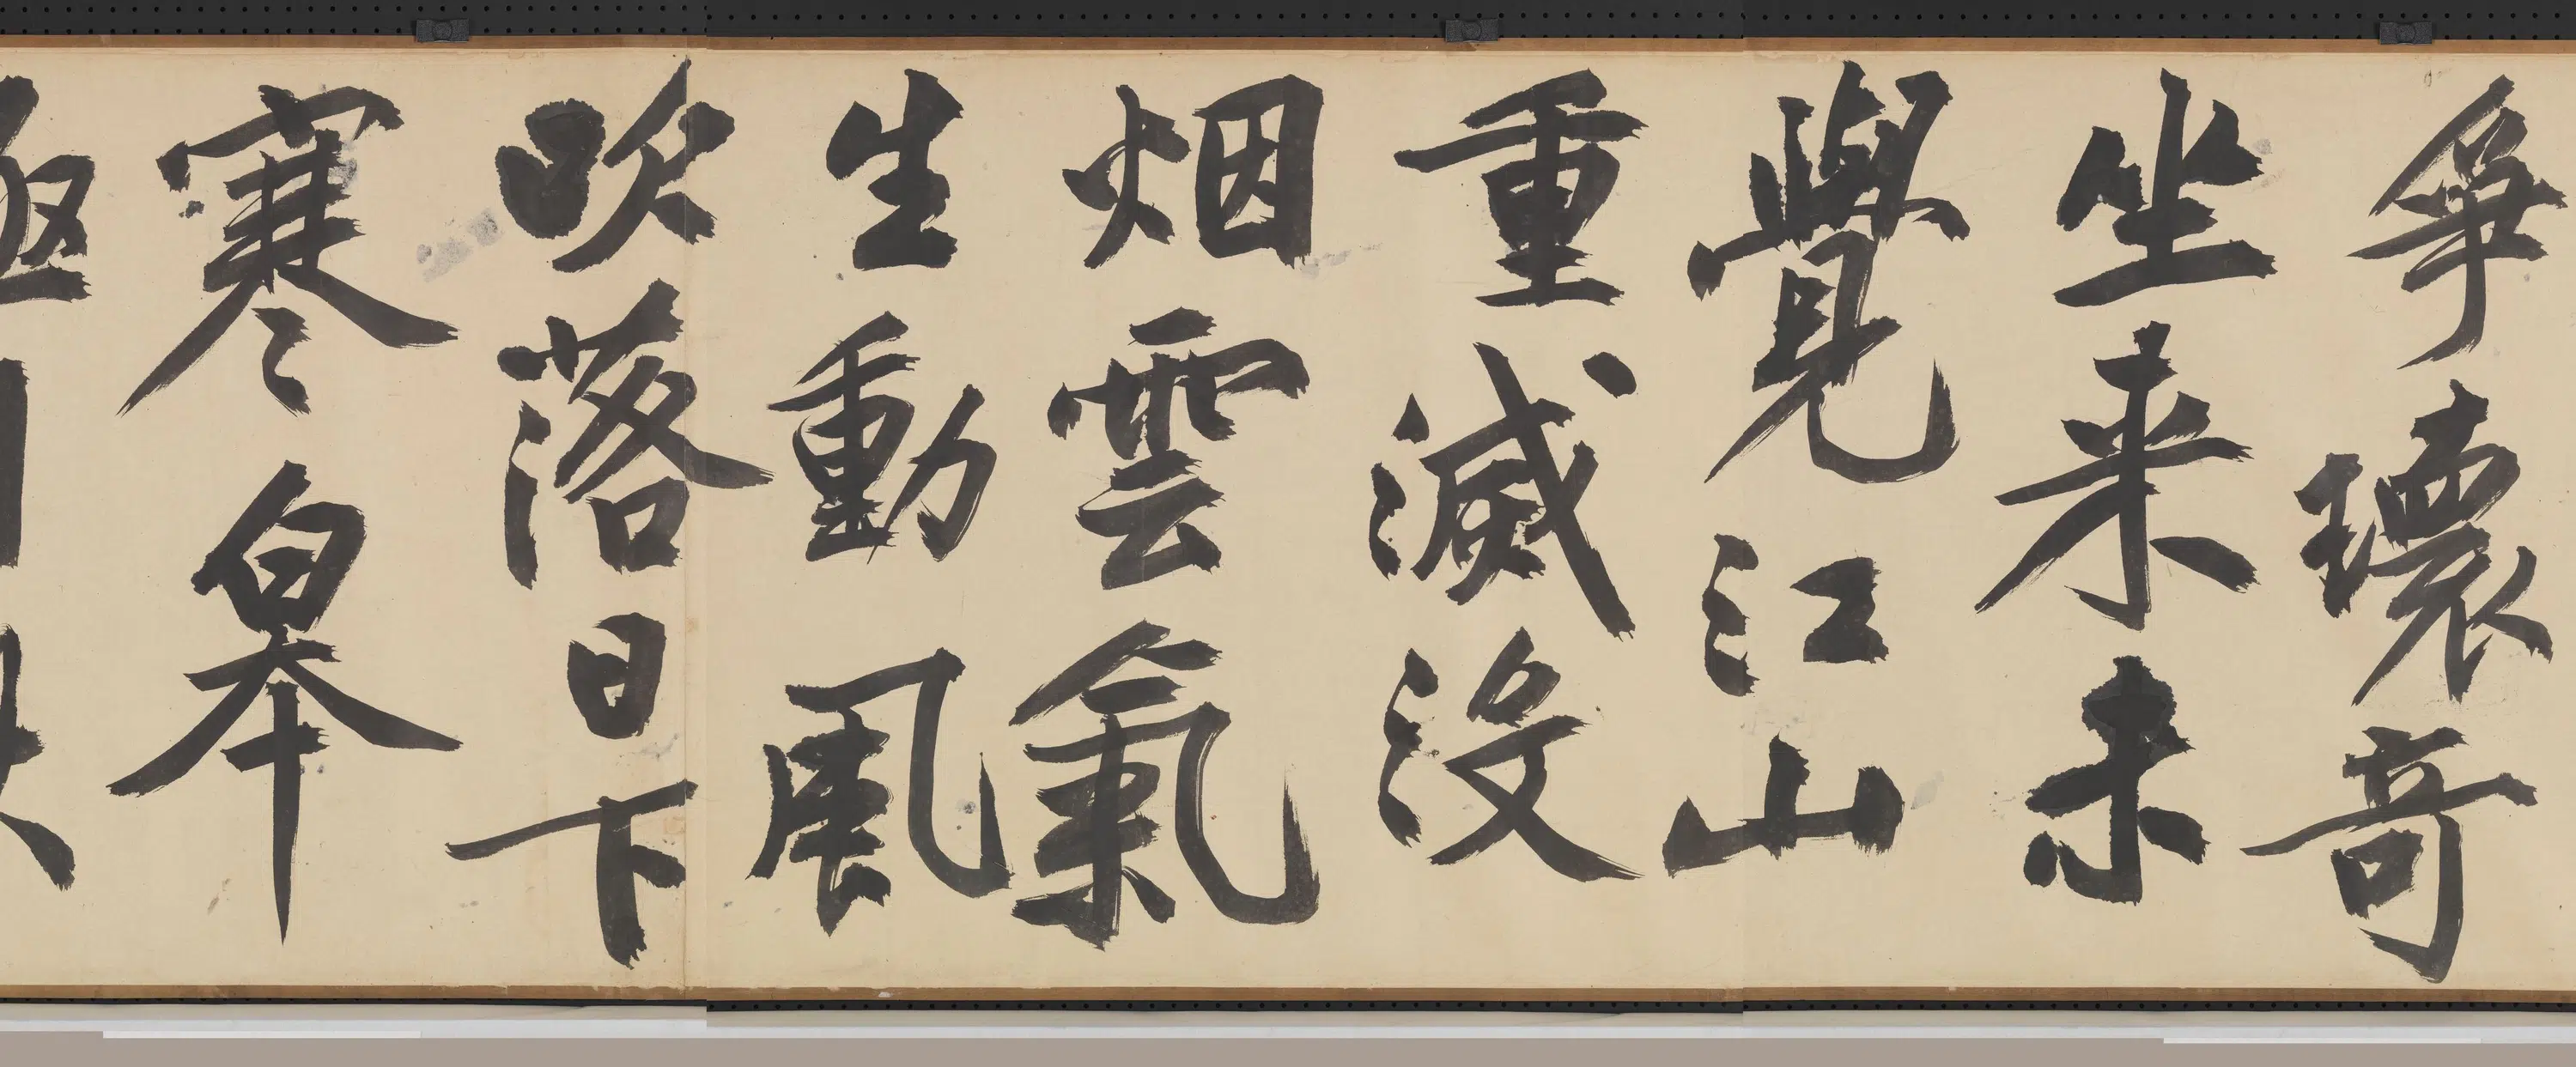 爭環奇
坐来未
覺江山
重滅没
烟雲氣
生動風
吹落日下
寒皋